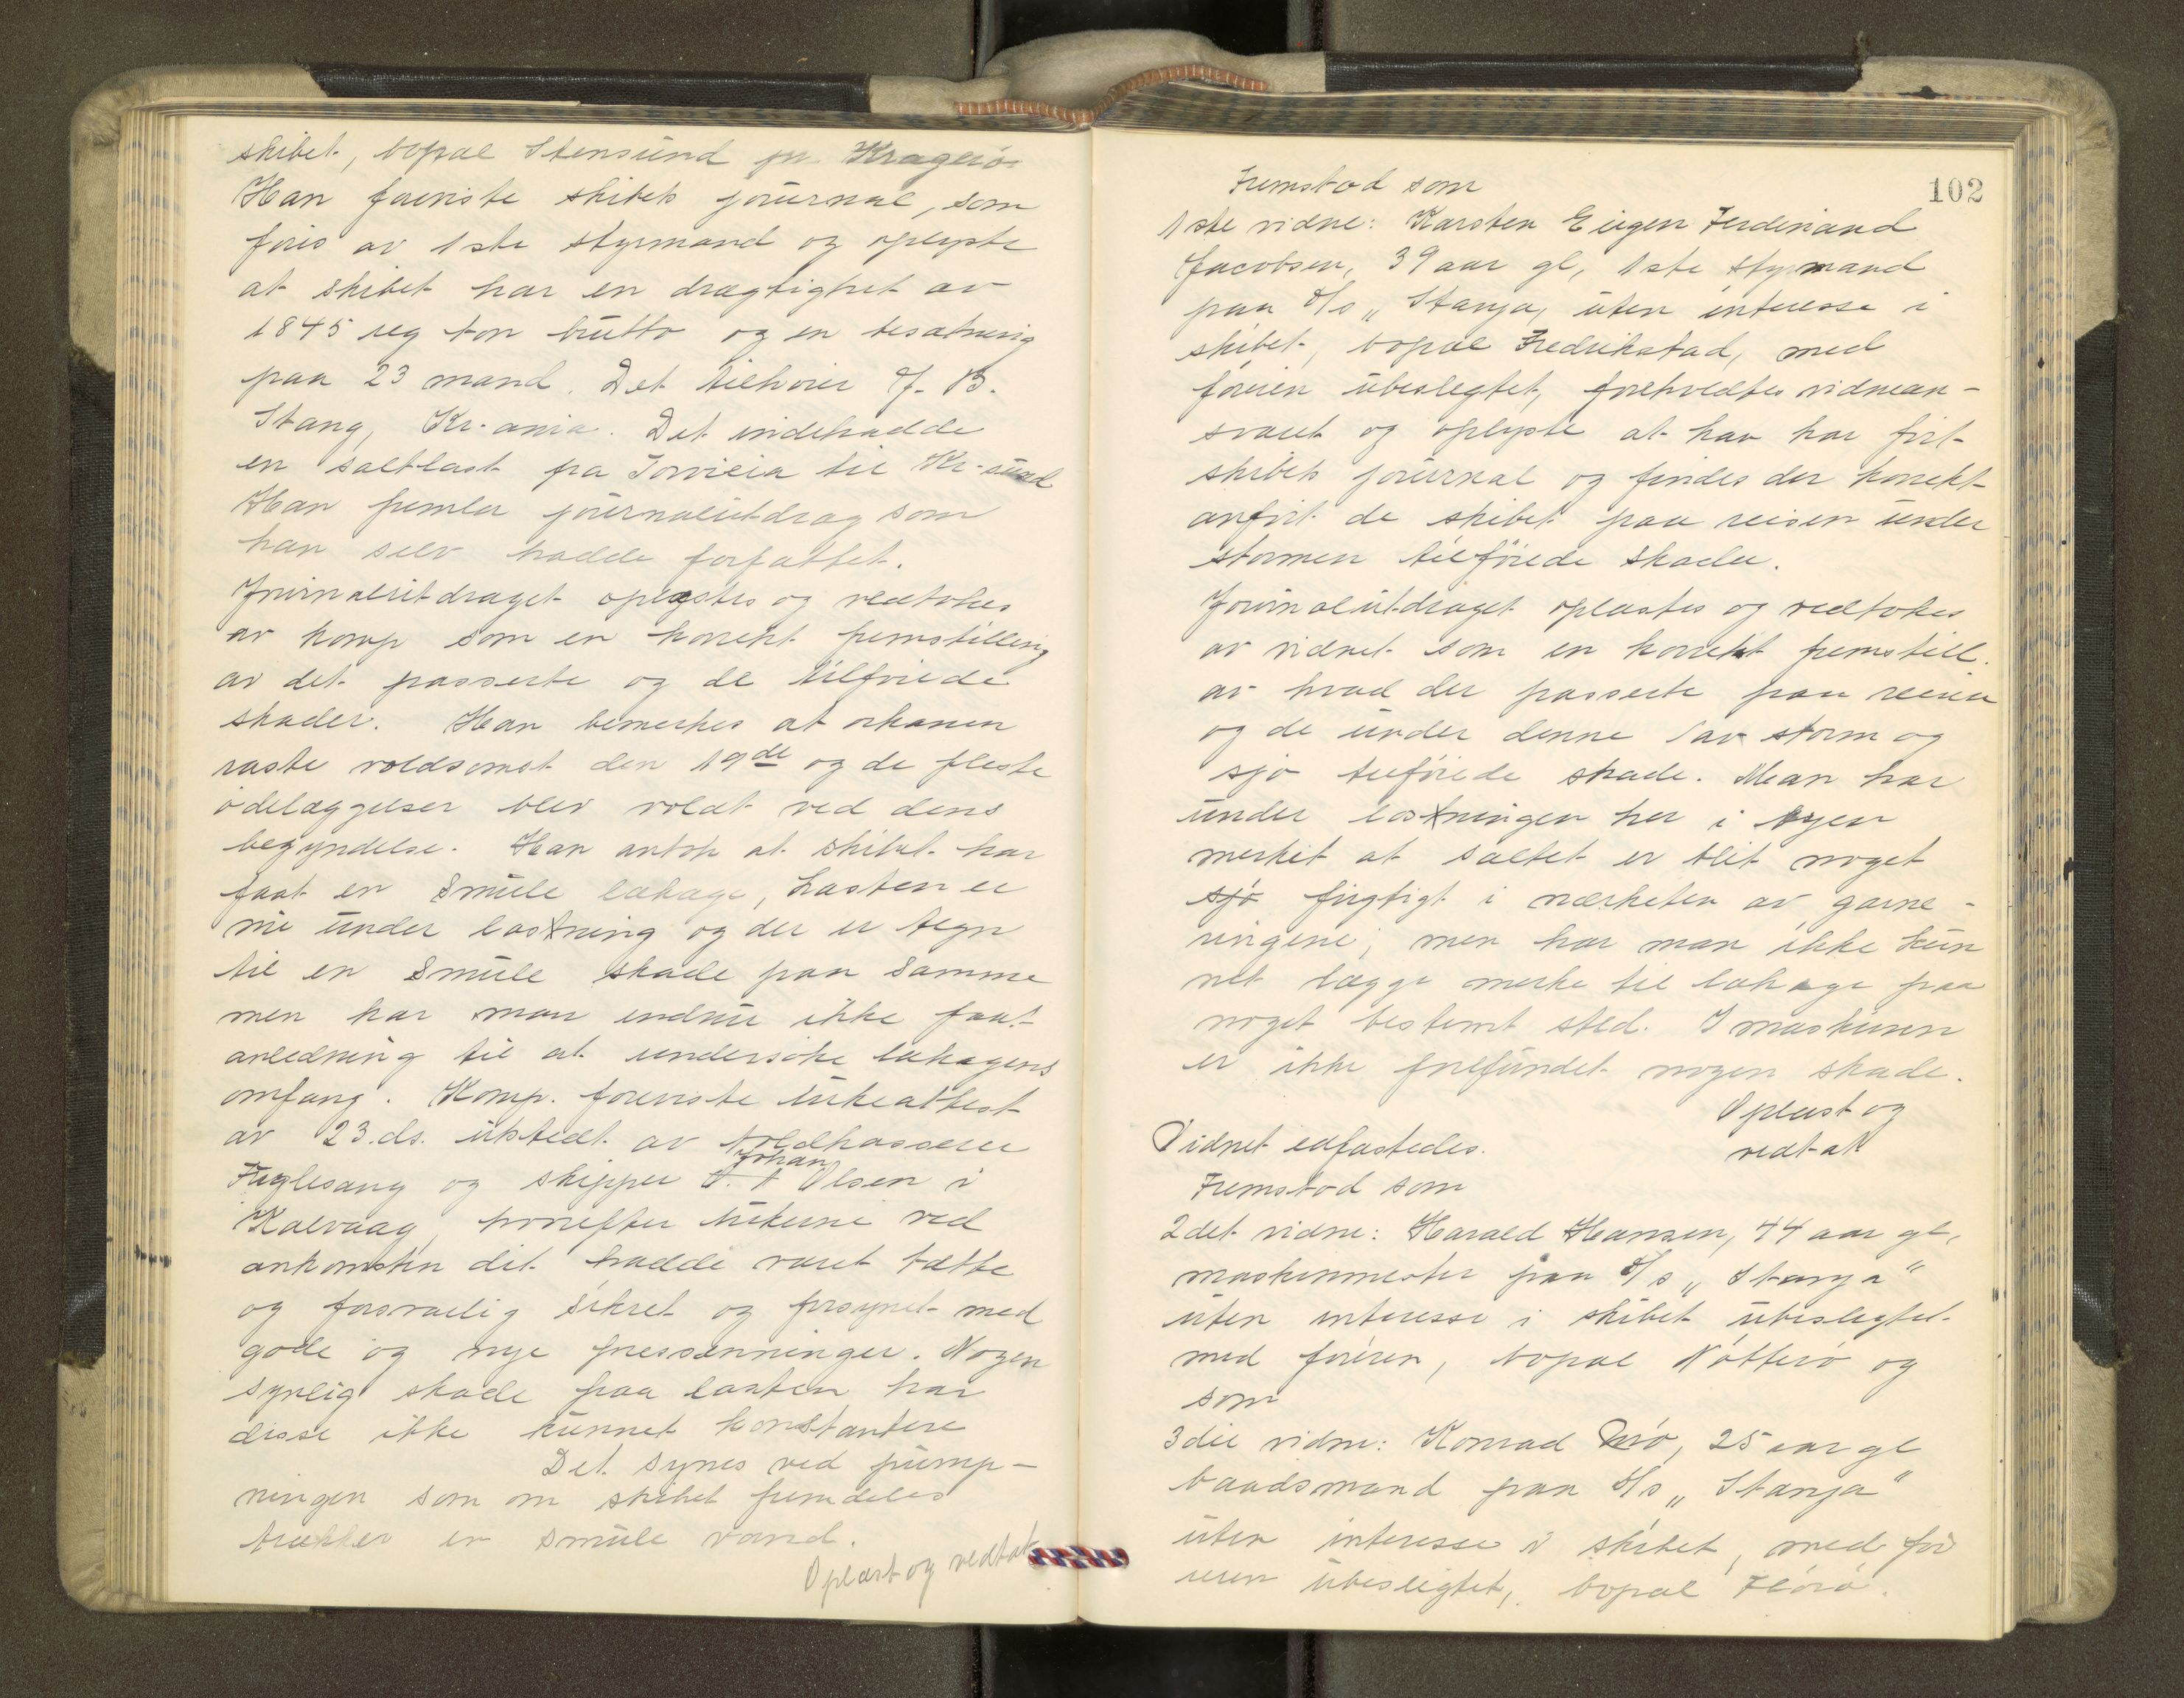 skibet, bopæl Stensund pr Kragerö
Han foreviste skibets journal, som
föres av 1ste styrmand og oplyste
at skibet har en drægtighet av
1845 reg ton brutto og en besætning
paa 23 mand. Det tilhörer J. B.
Stang, Kr.ania. Det indehadde
en saltlast fra Torvieia til Kr.sund
Han fremla journalutdrag som
han selv hadde forfattet.
Journalutdraget oplæstes og vedtokes
av komp som en korrekt fremstilling
av det passerte og de tilföiede
skader. Han bemerkes at orkanen
raste voldsomst den 19de og de fleste
ödelæggelser blev voldt ved dens
begyndelse. Han antok at skibet har
faat en smule lækage, Lasten er
nu under losning og der er tegn
til en smule skade paa samme
men har man endnu ikke faat
anledning til at undersöke lækagens
omfang. Komp. foreviste lukeattest
av 23.ds. utstedt av toldkasserer
Johan
Fuglesang og skipper A Olsen i
Kalvaag, hvorefter lukene ved
ankomsten dit hadde været tætte
og forsvarlig sikret og forsynet med
gode og nye presenninger. Nogen
synlig skade paa lasten har
disse ikke kunnet konstantere
Det synes ved pump-
ningen som om skibet fremdeles
trækker en smule vand.
Oplæst og vedtat
102
Fremstod som
1ste vidne: Karsten Eugen Ferdinand
Jacobsen, 39 aar gl, 1ste styrmand
paa S/s „Stanja, uten interesse i
skibet, bopæl Fredrikstad, med
föreren ubeslegtet, foreholdtes vidnean-
svaret og oplyste at han har fört
skibets journal og findes der korrekt
anfört de skibet paa reisen under
stormen tilföiede skader.
Journalutdraget oplæstes og vedtokes
av vidnet som en korrekt fremstill.
av hvad der passerte paa reisen
og de under denne av storm og
sjö tilföiede skade. Man har
under losningen her i byen
merket at saltet er blit noget
sjö fugtigt i nærheten av garne-
ringene, men har man ikke kun
net lægge merke til lækage paa
noget bestemt sted. I maskinen
er ikke forefundet nogen skade.
Oplæst og
Vidnet edfæstedes.
vedtat
Fremstod som
2det vidne: Harald Hansen, 44 aar gl,
maskinmester paa S/s „Stanja"
uten interesse i skibet ubeslegtet
med föreren, bopæl Nötterö og
som
3die vidne: Konrad 25 aar gl
baadsmand paa S/s „Stanja"
uten interesse i skibet, med fö
reren ubeslegtet, bopæl Florö.